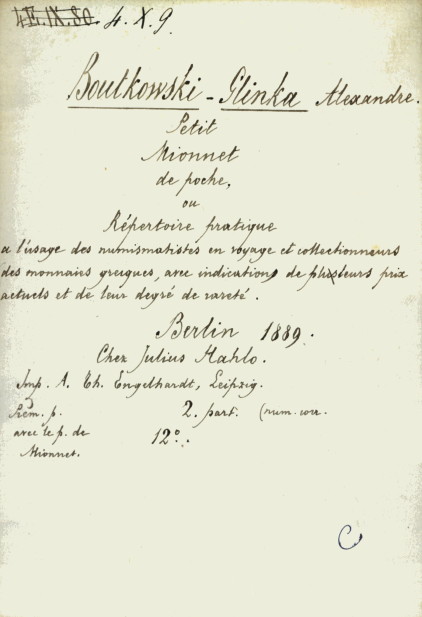 4. X. 9.
Boutkowski - Glinka Alexandre.
Petit
Mionnet
de poche,
ou
Répertoire pratique
a l'usage des numismatistes en voyage et collectionneurs
des monnaies grecques, avec indication de plusieurs prix
actuels et de leur degré de rareté.
Berlin 1889.
Chez Julius Hahlo.
Imp. A. Th. Engelhardt, Leipzig.
p. 2. part. (num. corr.
avec le p. de 12°.
Mionnet.
C